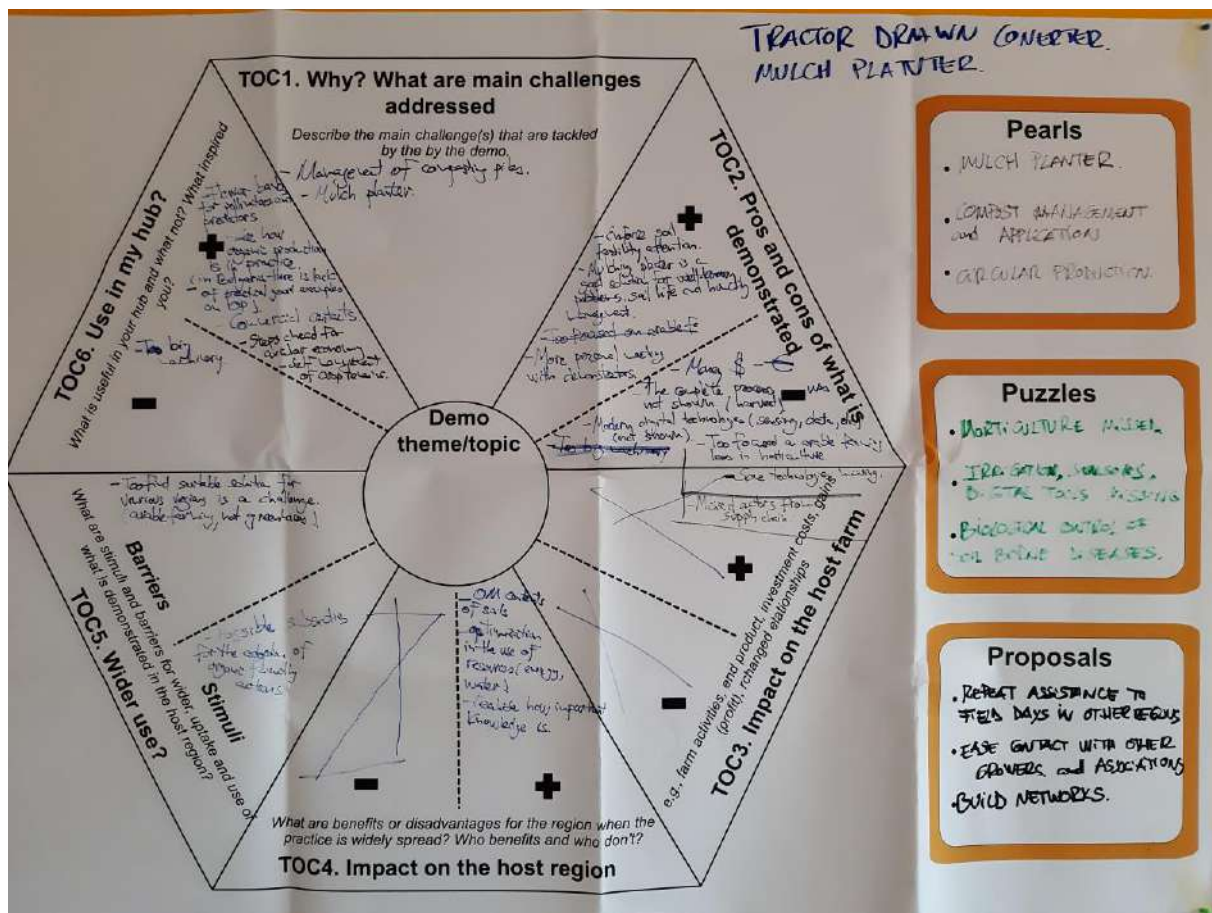 TRACTOR DRAWN CONERTER.
MULCH PLANTER.
TOC1. Why? What are main challenges
addressed
Describe the main challenge(s) that are tackled
by the by the demo.
- Management of composting piles.
- Mulch planter.
TOC2. Pros and cons of what is
demonstrated
+
soil
fertility
- My big plaster is a
good solution for
problems, soil life and humidity
- Too focused on arable f
- More personal
with demonstrators.
- Money $ - €
- The complete process was
not shown (harvest)
- Modern digital technologies (sensing, data,
(not shown)
- Too big machinery
- Too focused on arable farming
less in horticulture
- Some technologies missing.
- Missed actors from
supply chain
-
TOC3. Impact on the host farm
e.g., farm activities, end product, investment costs, gains
(profit), rchanged elationships
+
-
TOC4. Impact on the host region
What are benefits or disadvantages for the region when the
practice is widely spread? Who benefits and who don't?
- OM contents
of soils
- optimization
in the use of
resources (energy,
water)
- realize how important
knowledge is.
-
+
TOC5. Wider use?
What are stimuli and barriers for wider, uptake and use of
what is demonstrated in the host region?
Barriers
- Too find suitable solution for
various regions is a challenge.
(arable farming, not greenhouses)
Stimuli
- Possible subsidies
for the
of
TOC6. Use in my hub?
What is useful in your hub and what not? What inspired
you?
+
- Flower bands
for pollinators and
predators
- See how
organic production
is in practice
there is lack
of practical good examples
- Commercial contacts.
- Steps ahead for
circular economy
- Self
of
- Too big
machinery
-
Demo
theme/topic
Pearls
• MULCH PLANTER.
• COMPOST MANAGEMENT
and APPLICATION
• CIRCULAR PRODUCTION.
Puzzles
• HORTICULTURE MISSED.
• IRRIGATION, SENSORS,
DIGITAL TOOLS MISSING
• BIOLOGICAL CONTROL OF
BORNE DISEASES.
Proposals
• REPEAT ASSISTANCE TO
FIELD DAYS IN OTHER REGIONS
• EASE CONTACT WITH OTHER
GROWERS and ASOCIATIONS
• BUILD NETWORKS.